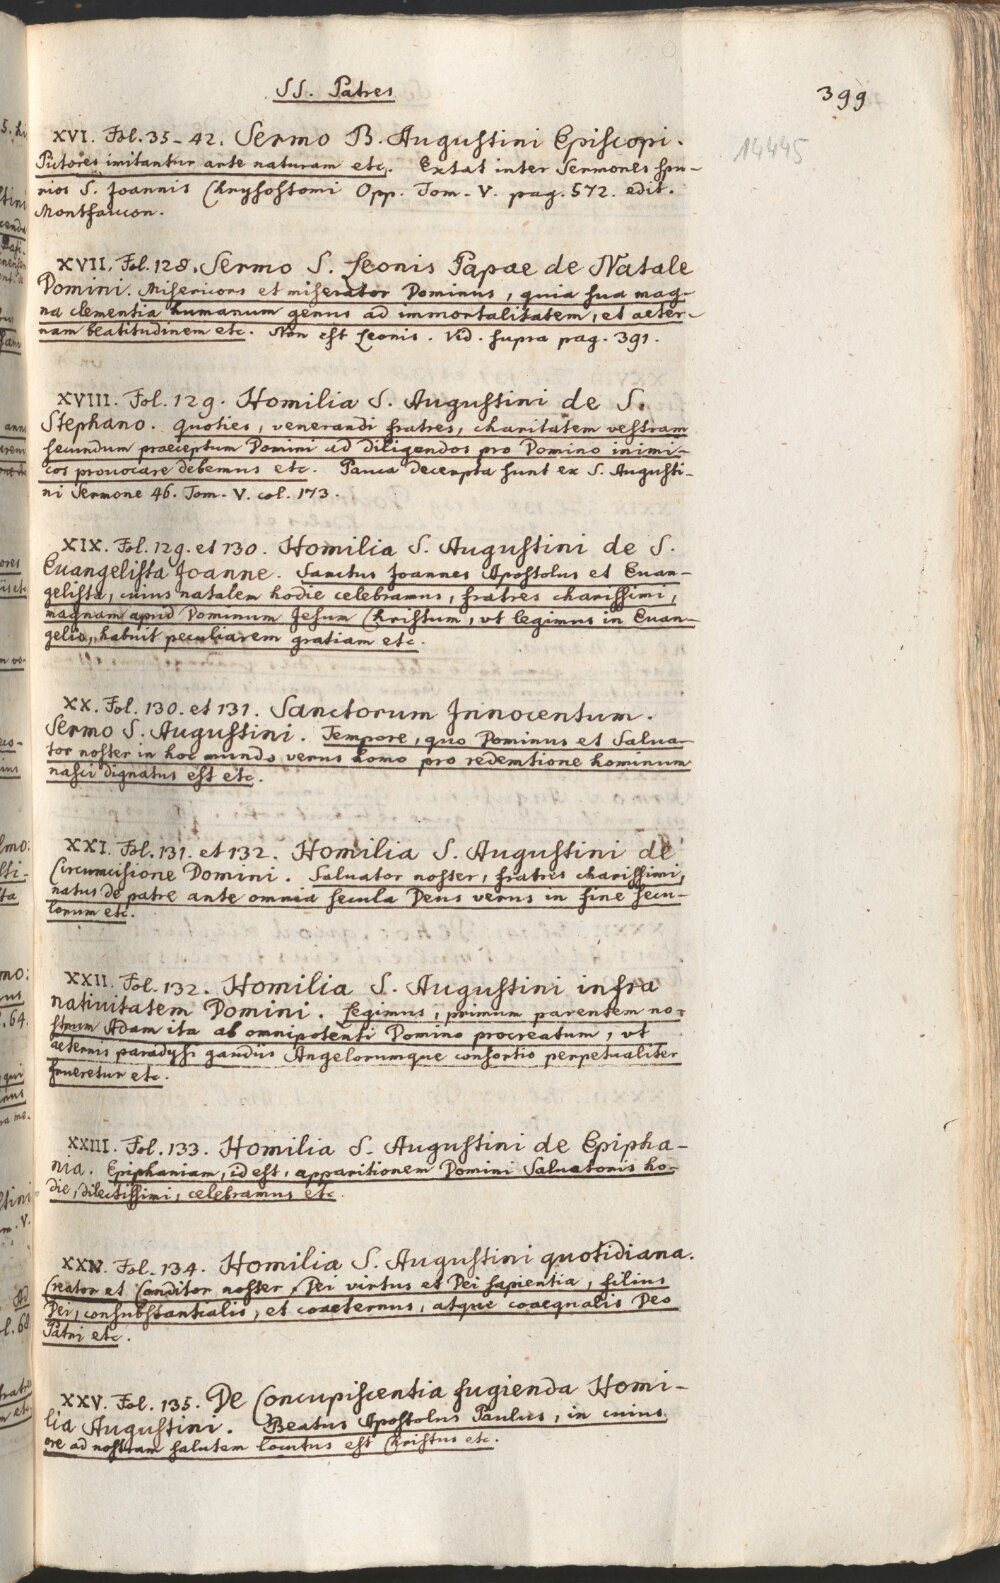 SS. Patres
399
14445
XVI. Fol. 35-42. Sermo B. Augustini Episcopi.
Pictores imitantur ante naturam etc. Extat inter Sermones spu-
rios S. Joannis Chrysostomi Opp. Tom. V. pag. 572. edit.
Montfaucon.
XVII. Fol. 128. Sermo S. Leonis Papae de Natale
Domini. Misericors et miserator Dominus, quia sua mag-
na clementia humanum genus ad immortalitatem, et aeter-
nam beatitudinem etc. Non est Leonis. Vid. supra pag. 391.
XVIII. Fol. 129. Homilia S. Augustini de S.
Stephano. Quoties, venerandi fratres, charitatem vestram
secundum praeceptum Domini ad diligendos pro Domino inimi-
cos prouocare debemus etc. Pauca decerpta sunt ex S. Augusti-
ni Sermone 46. Tom. V. col. 173.
XIX. Fol. 129. et 130. Homilia S. Augustini de S.
Euangelista Joanne. Sanctus Joannes Apostolus et Euan-
gelista, cuius natalem hodie celebramus, fratres charissimi,
magnam apud Dominum Jesum Christum, vt legimus in Euan-
gelio, habuit peculiarem gratiam etc.
XX. Fol. 130. et 131. Sanctorum Innocentum.
Sermo S. Augustini. Tempore, quo Dominus et Salua-
tor noster in hoc mundo verus homo pro redemtione hominum
nasci dignatus est etc.
XXI. Fol. 131. et 132. Homilia S. Augustini de
Circumcisione Domini. Saluator noster, fratres charissimi,
natus de patre ante omnia secula Deus verus in fine secu-
lorum etc.
XXII. Fol. 132. Homilia S. Augustini infra
natiuitatem Domini. Legimus, primum parentem no-
strum Adam ita ab omnipotenti Domino procreatum, vt
aeternis paradysi gaudiis Angelorumque consortio perpetualiter
frueretur etc.
XXIII. Fol. 133. Homilia S. Augustini de Epipha-
nia. Epiphaniam, id est, apparitionem Domini Saluatoris ho-
die, dilectissimi, celebramus etc.
XXIV. Fol. 134. Homilia S. Augustini quotidiana.
Creator et Conditor noster, Dei virtus et Dei sapientia, filius
Dei, consubstantialis, et coaeternus, atque coaequalis Deo
Patri etc.
XXV. Fol. 135. De Concupiscentia fugienda Homi-
lia Augustini. Beatus Apostolus Paulus, in cuius
ore ad nostram salutem locutus est Christus etc.